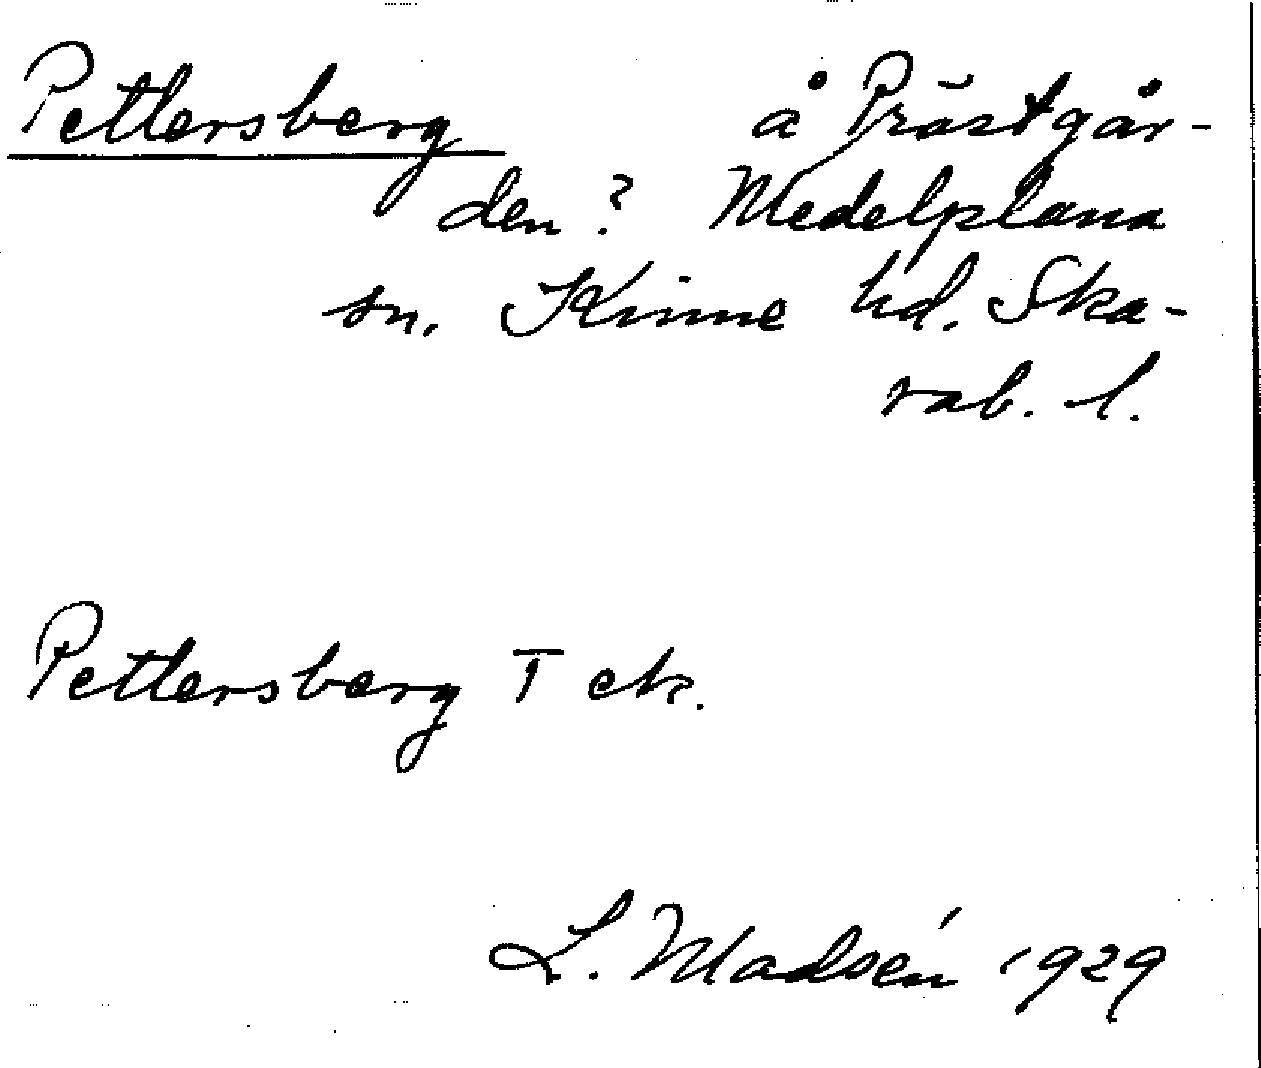 Pettersberg å Prästgår-
den? Medelplana
sn. Kinne hd. Ska-
rab. l.
Pettersberg T ek.
L. Madsén 1929